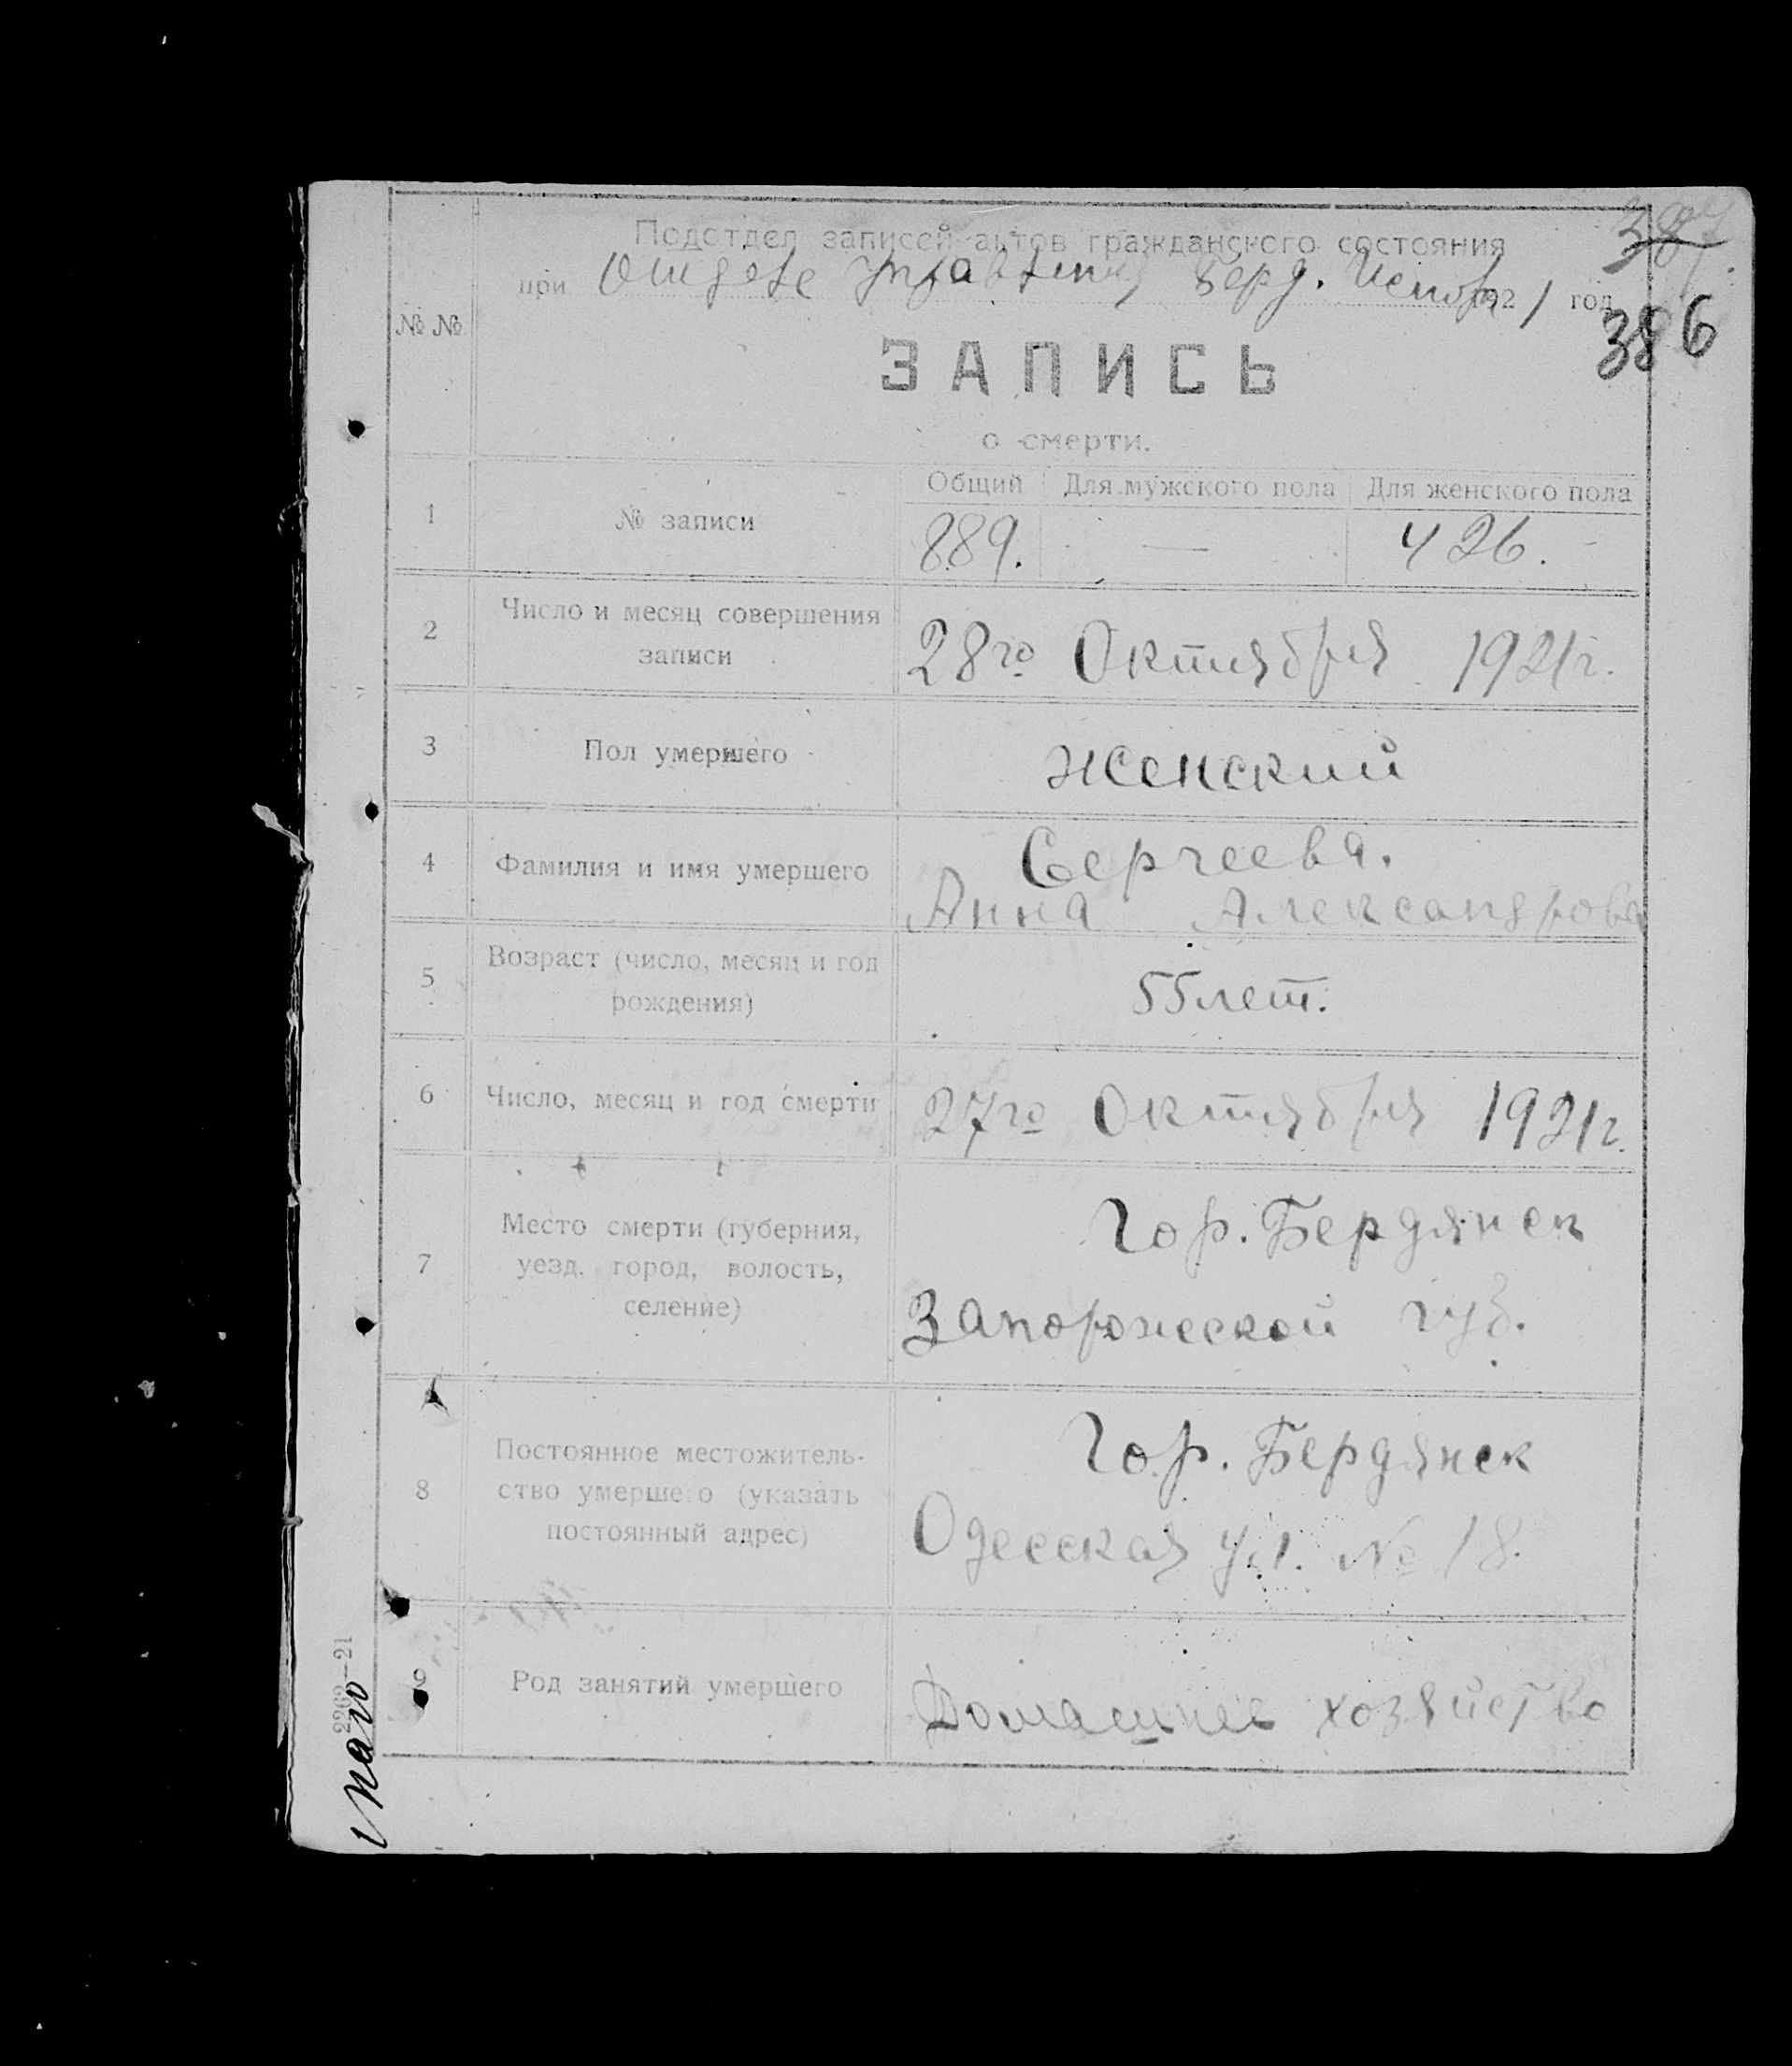 387
Подотдел записей актов гражданского состояния
при Отделе Управления Берд. Исполк. 1921 год
386
№ №
ЗАПИСЬ
о смерти.
1 № записи
Общий Для мужского пола Для женского пола
889. — 426.
2 Число и месяц совершения
записи
28го Октября 1921г.
3 Пол умершего Женский
4 Фамилия и имя умершего
Сергеева.
Анна Александрова
5 Возраст (число, месяц и год
рождения)
55 лет.
6 Число, месяц и год смерти 27го Октября 1921г.
7 Место смерти (губерния,
уезд, город, волость,
селение)
Гор. Бердянск
Запорожской губ.
8 Постоянное местожитель-
ство умершего (указать
постоянный адрес)
Гор. Бердянск
Одесская ул. № 18.
9 Род занятий умершего Домашнее хозяйство
2262—21